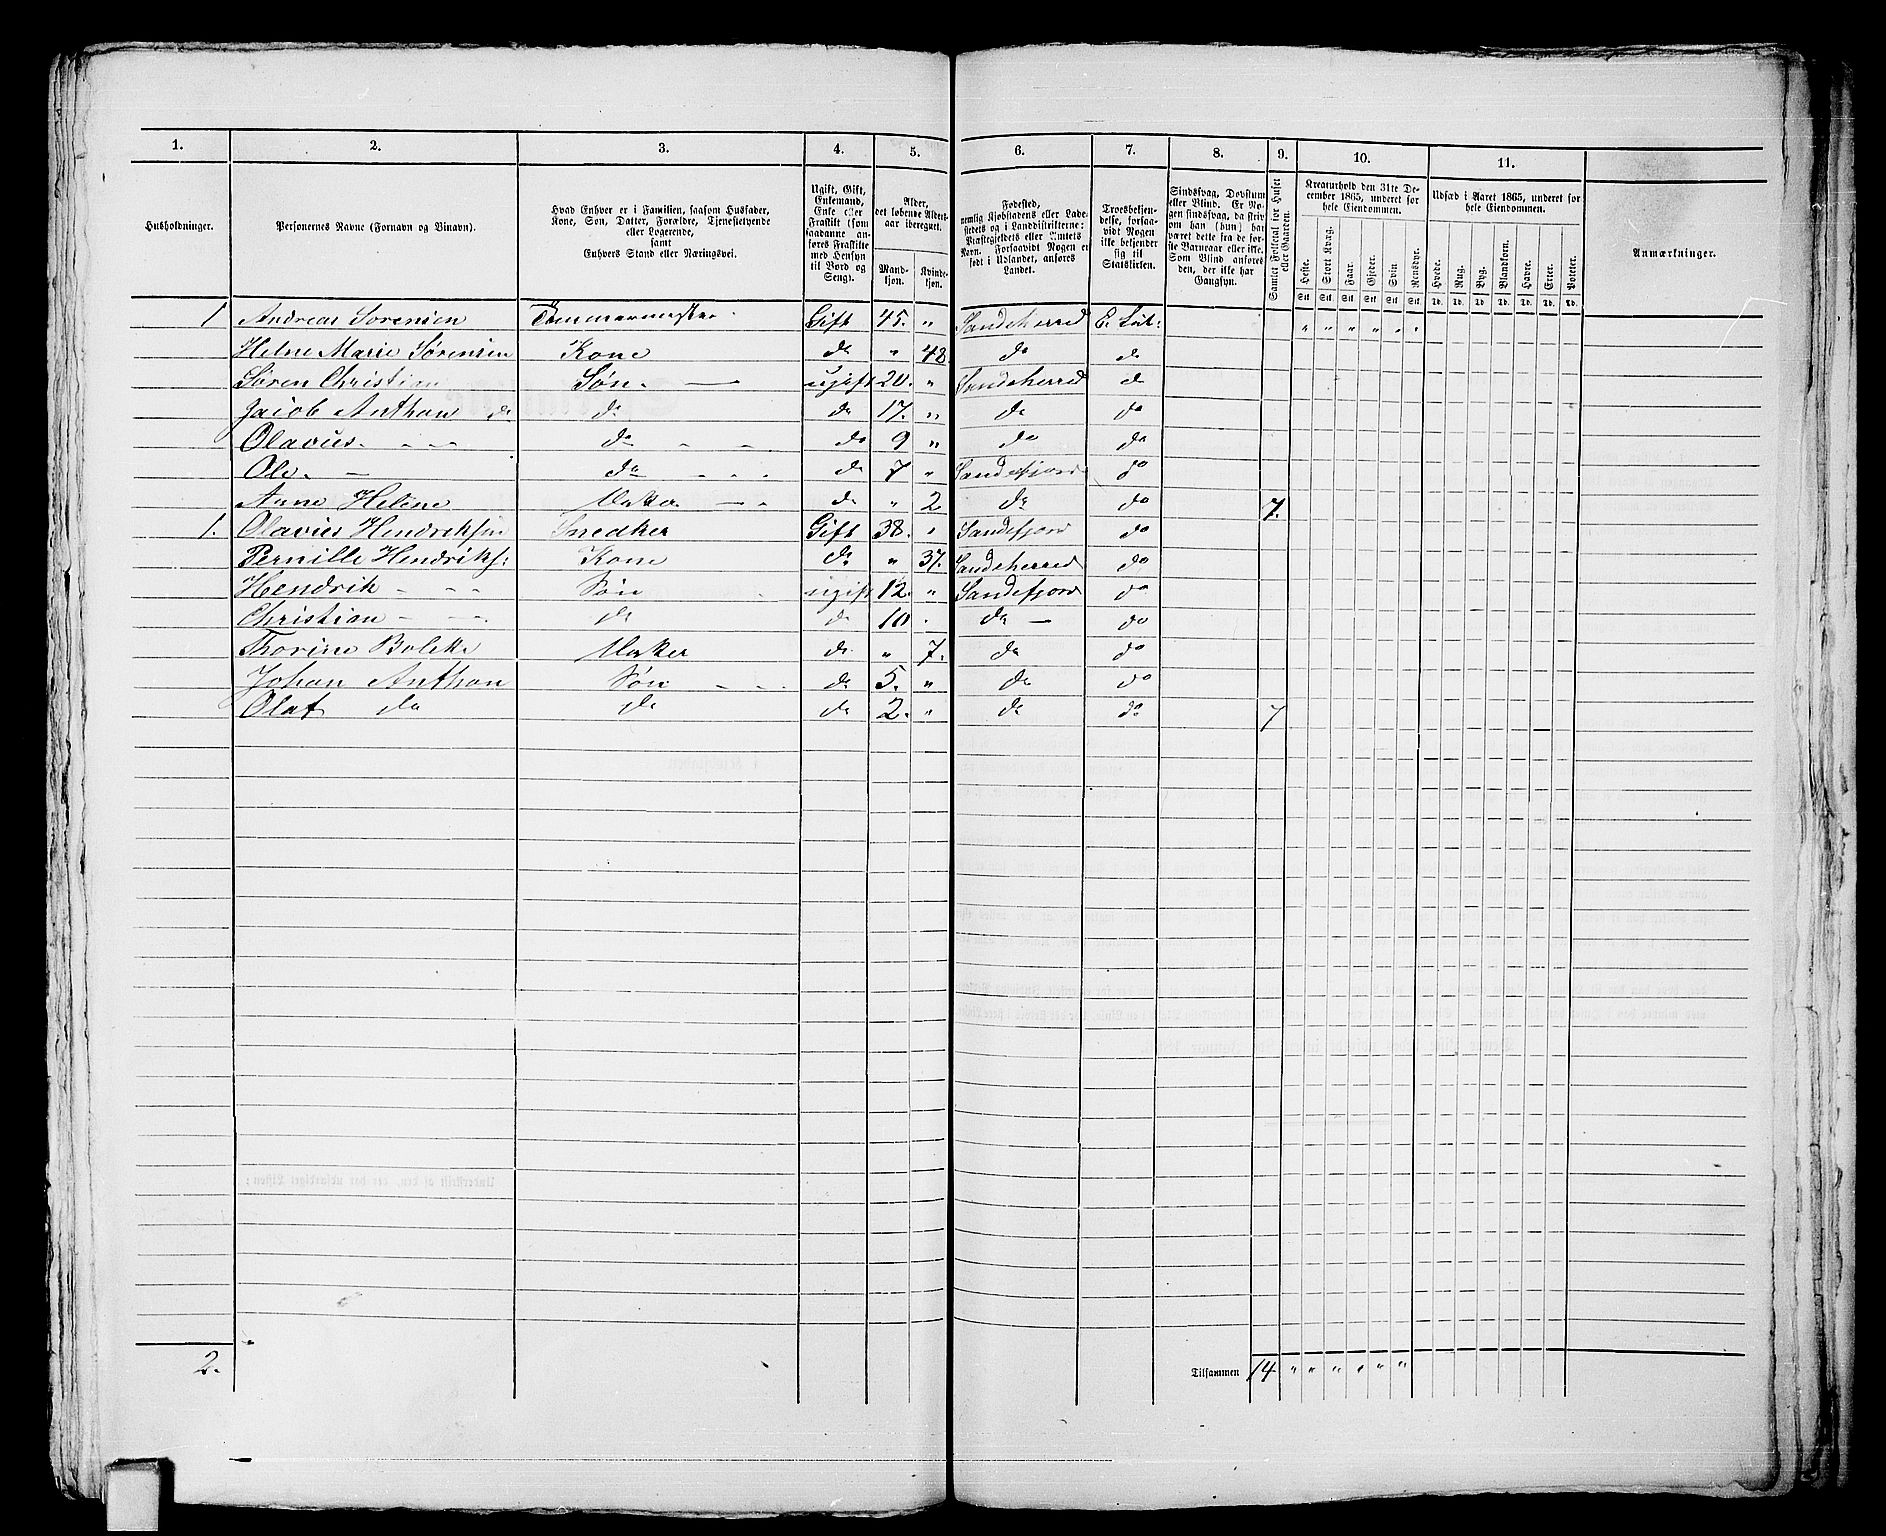 1. 2. 3. 4. 5. 6. 7. 8. 9. 10. 11.
Husholdninger.
Personernes Navne (Fornavn og Binavn).
Hvad Enhver er i Familien, saasom Husfader,
Kone, Søn, Datter, Forældre, Tjenestetyende
eller Logerende,
samt
Enhvers Stand eller Næringsvei.
Ugift, Gift,
Enkemand,
Enke eller
Fraskilt (som
saadanne an-
føres Fraskilte
med Hensyn
til Bord og
Seng).
Alder,
det løbende Alders-
aar iberegnet.
Mand-
kjøn.
Kvinde-
kjøn.
Fødested,
nemlig Kjøbstadens eller Lade-
stedets og i Landdistrikterne:
Præstegjeldets eller Amtets
Navn. Forsaavidt Nogen er
født i Udlandet, anføres
Landet.
Troesbekjen-
delse, forsaa-
vidt Nogen
ikke bekjender
sig til
Statskirken.
Sindssvag, Døvstum
eller Blind. Er No-
gen sindssvag, da skriv
om han (hun) har
været det fra de før-
ste Barneaar eller ikke.
Som Blind anføres
den, der ikke har
Gangsyn.
Samlet Folketal for Huset
eller Gaarden.
Kreaturhold den 31te De-
cember 1865, underet for
hele Eiendommen.
Heste. Stort Kvæg. Faar. Gjeder. Svin Rensdyr.
Stk. Stk. Stk. Stk. Stk. Stk.
Udsæd i Aaret 1865, underet for
hele Eiendommen.
Hvede. Rug. Byg. Blandkorn. Havre. Erter. Poteter.
Td. Td. Td. Td. Td. Td. Td.
Anmærkninger.
1 Andreas Sørensen Tømmermester Gift 45. " Sandeherred E. Lut: " " " " " "
Helne Marie Sørensen Kone do " 48. do do
Søren Christian Søn. — ugift 20. " Sandeherred do
Jacob Anthon do do do 17. " do do
Olavus - - - do - - do 9 " do do
Ole - — do - - do 7 " Sandefjord do
Anne Helene Datter — - do " 2 do do 7.
1. Olavus Hendriksen Snedker Gift 38. " Sandefjord do
Pernille Hendriks: Kone do " 37. Sandeherred do
Hendrik - - - Søn ugift 12. " Sandefjord do
Christian - - - do do 10 " do — do
Thorine Bolette Datter do " 7. do do
Johan Anthon Søn - - do 5. " do do
Olaf do do do 2. " do do 7
2.
Tilsammen 14 " " " " " "